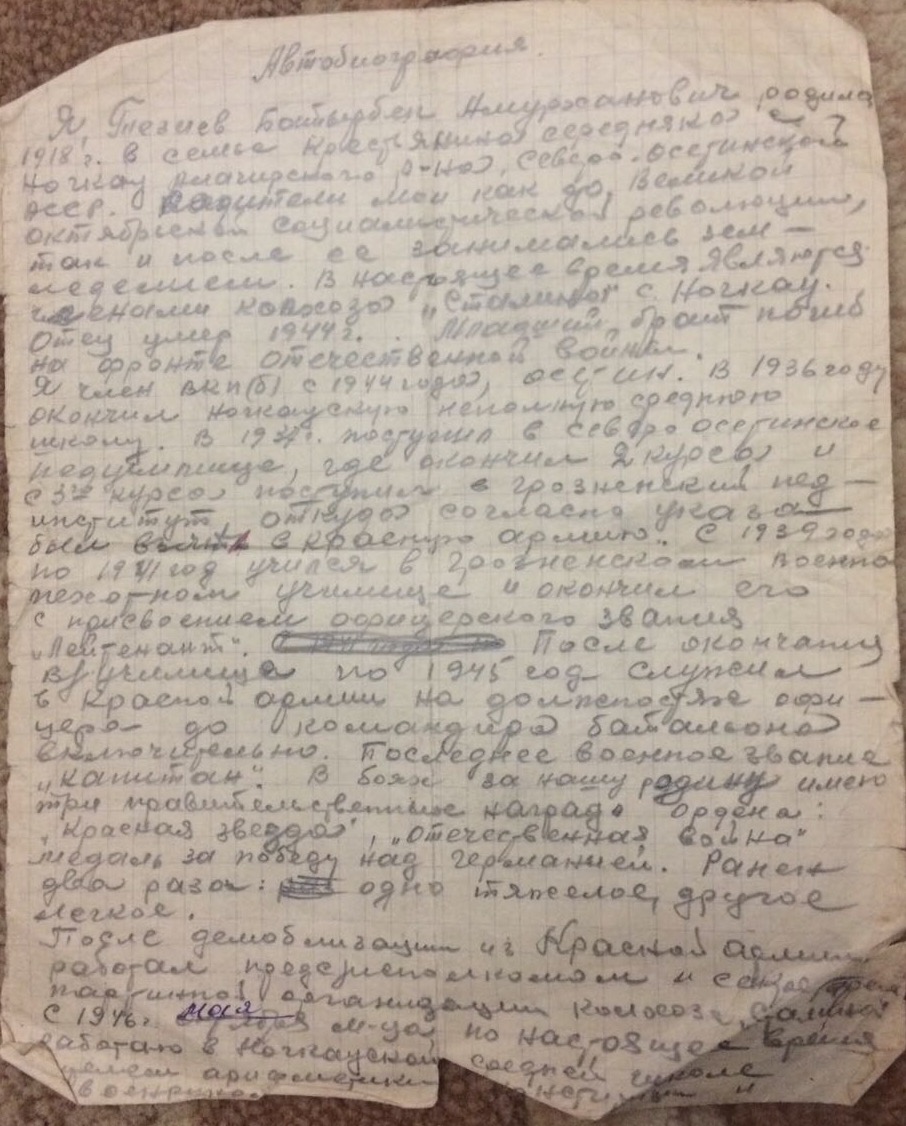 Автобиография.
Я, Тезиев Батырбек Амурханович родился
1918 г. в семье крестьянина середняка с.
Ногкау Алагирского р-на, Северо-Осетинской
АССР. Родители мои как до Великой
октябрьской социалистической революции,
так и после ее занимались зем-
леделием. В настоящее время являются
членами колхоза "Сталина" с. Ногкау.
Отец умер 1944 г. Младший брат погиб
на фронте отечественной войны.
Я член ВКП(б) с 1944 года, осетин. В 1936 году
окончил Ногкаускую неполную среднюю
школу. В 1937 г. поступил в северо осетинское
педучилище, где окончил 2 курса и
с 3го курса поступил в грозненский пед-
институт, откуда согласно указа
был взят в красную армию. С 1939 года
по 1941 год учился в Грозненском военно
пехотном училище и окончил его
с присвоением офицерского звания
"Лейтенант". После окончания
в/училища по 1945 год служил
в Красной армии на должностях офи-
цера до командира батальона
включительно. Последнее военное звание
"капитан". В боях за нашу родину имею
три правительственные награды ордена:
"Красная звезда", "Отечественная война"
медаль за победу над германией. Ранен
два раза: одно тяжелое, другое
легкое.
После демоблизации из Красной армии
работал пред с/исполкомом и секретарем
партийной организации колхоза "Сталина"
С 1946 г. мая м-ца по настоящее время
работаю в Ногкауской средней школе
арифметики
военруком